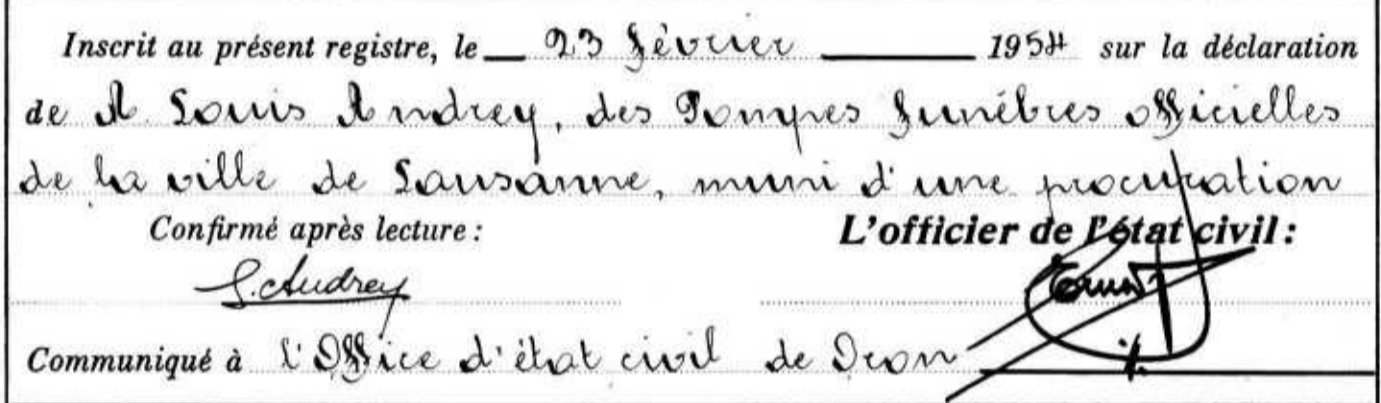 Inscrit au présent registre, le 23 février 1954 sur la déclaration
de M. Louis Andrey, des Pompes funèbres officielles
de la ville de Lausanne, muni d'une procuration
Confirmé après lecture : L'officier de l'état civil :
L. Andrey
Communiqué à l'Office d'état civil de Oron